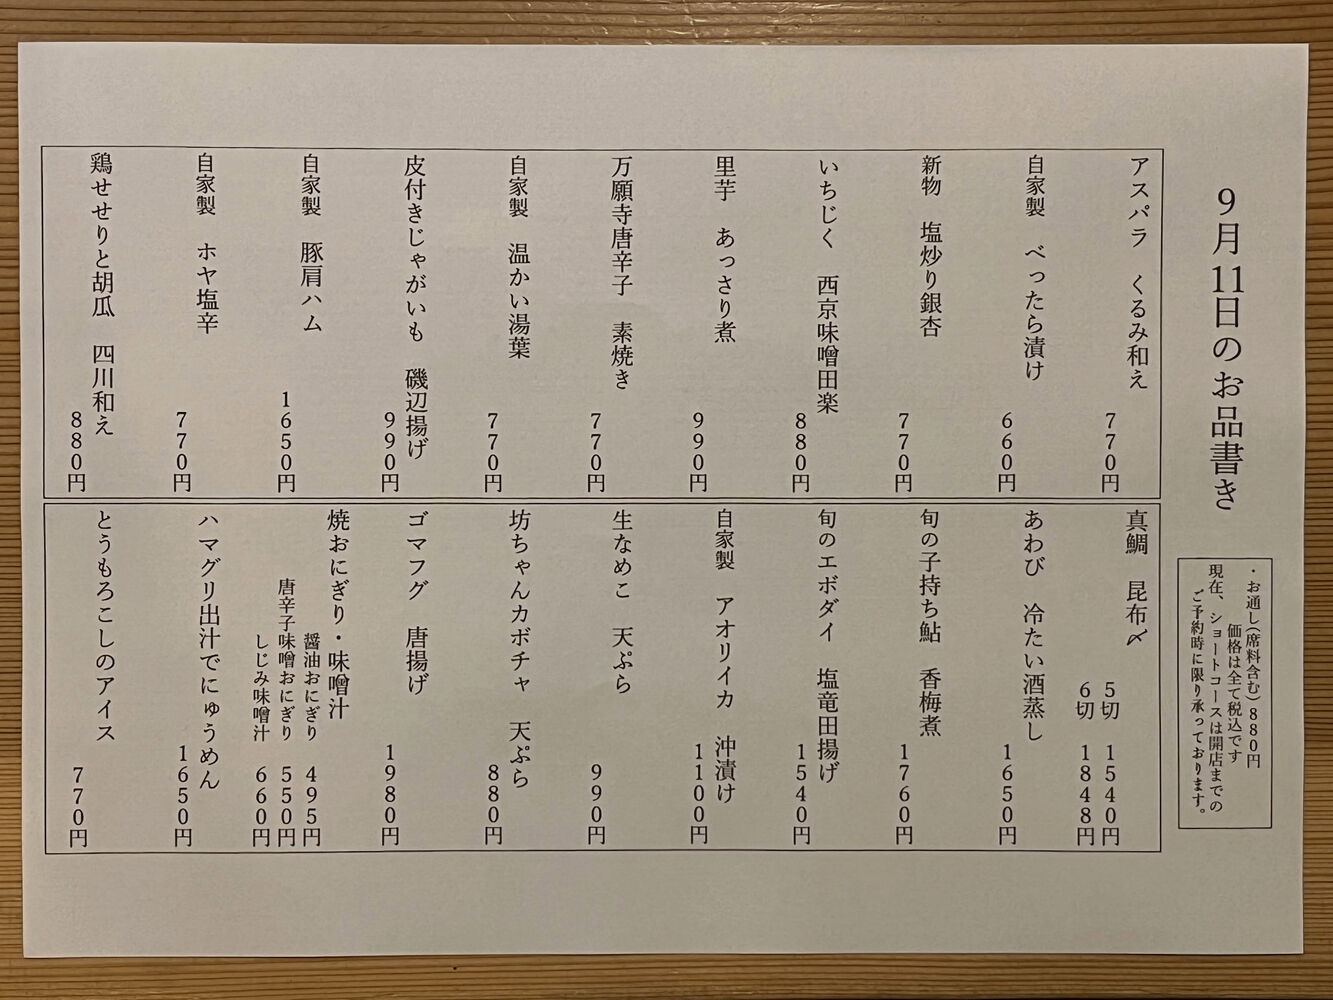 9月11日のお品書き
・お通し(席料含む)880円
価格は全て税込です
現在、ショートコースは開店までの
ご予約時に限り承っております。
アスパラ くるみ和え
770円
自家製 べったら漬け
660円
新物 塩炒り銀杏
770円
いちじく 西京味噌田楽
880円
里芋 あっさり煮
990円
万願寺唐辛子 素焼き
770円
自家製 温かい湯葉
770円
皮付きじゃがいも 磯辺揚げ
990円
自家製 豚肩ハム
1650円
自家製 ホヤ塩辛
770円
鶏せせりと胡瓜 四川和え
880円
真鯛 昆布〆
5切 1540円
6切 1848円
あわび 冷たい酒蒸し
1650円
旬の子持ち鮎 香梅煮
1760円
旬のエボダイ 塩竜田揚げ
1540円
自家製 アオリイカ 沖漬け
1100円
生なめこ 天ぷら
990円
坊ちゃんカボチャ 天ぷら
880円
ゴマフグ 唐揚げ
1980円
焼おにぎり・味噌汁
醤油おにぎり 495円
唐辛子味噌おにぎり 550円
しじみ味噌汁 660円
ハマグリ出汁でにゅうめん
1650円
とうもろこしのアイス
770円